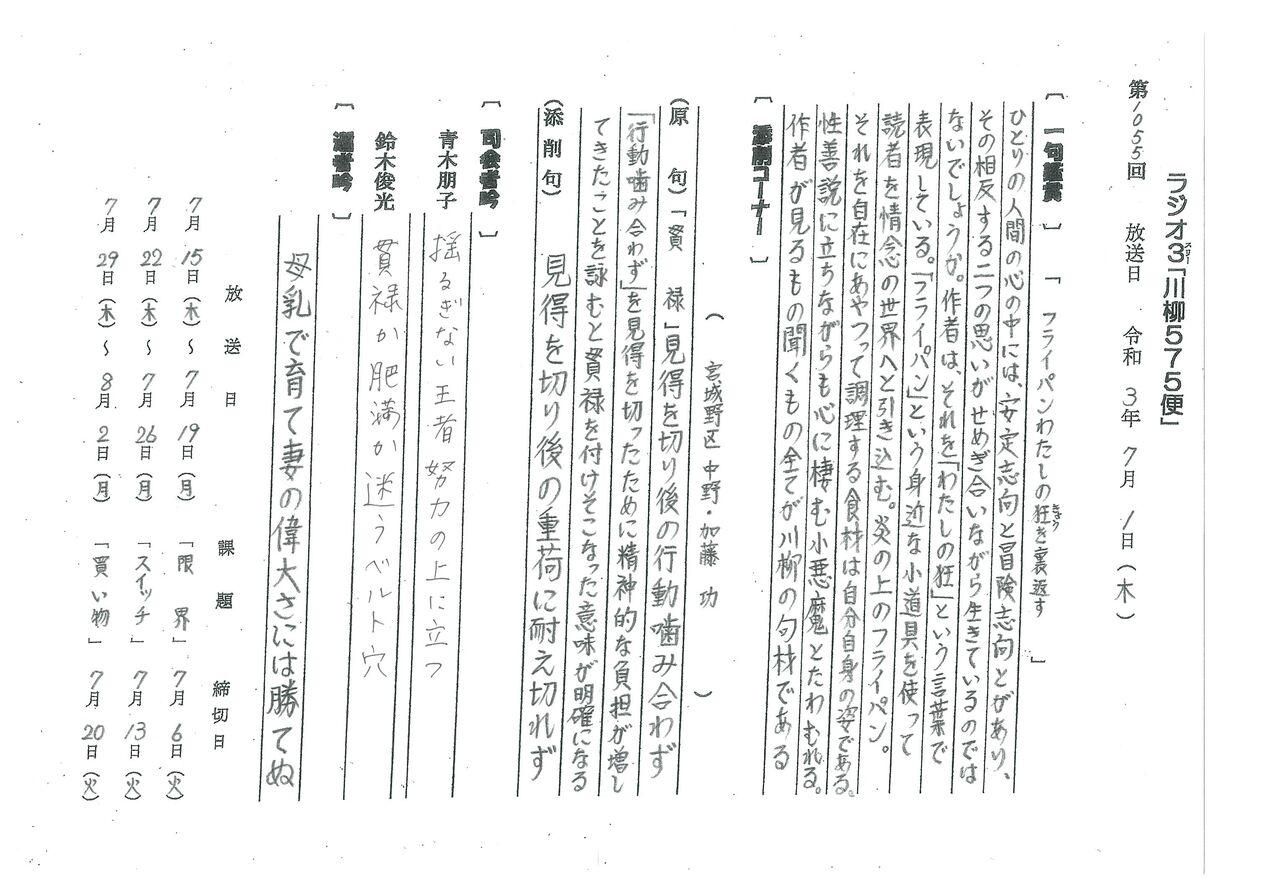 ラジオ3「川柳575便」
第1055回 放送日 令和3年7月1日(木)
[一句鑑賞] 「フライパンわたしの狂き裏返す」
ひとりの人間の心の中には、安定志向と冒険志向とがあり、
その相反する二つの思いがせめぎ合いながら生きているのでは
ないでしょうか。作者は、それを「わたしの狂」という言葉で
表現している。「フライパン」という身近な小道具を使って
読者を情念の世界へと引き込む。炎の上のフライパン。
それを自在にあやつって調理する食材は自分自身の姿である。
性善説に立ちながらも心に棲む小悪魔とたわむれる。
作者が見るもの聞くもの全てが川柳の句材である
[添削コーナー]
(宮城野区 中野・加藤 功)
(原 句)「貫 禄」見得を切り後の行動噛み合わず
「行動噛み合わず」を見得を切ったために精神的な負担が増し
てきたことを詠むと貫禄を付けそこなった意味が明確になる
(添削句) 見得を切り後の重荷に耐え切れず
[司会者吟]
青木朋子 揺るぎない王者努力の上に立つ
鈴木俊光 貫禄か肥満か迷うベルト穴
[選者吟]
母乳で育て妻の偉大さには勝てぬ
放送日 課題 締切日
7月15日(木)～7月19日(月) 「限 界」 7月6日(火)
7月22日(木)～7月26日(月) 「スイッチ」 7月13日(火)
7月29日(木)～8月2日(月) 「買い物」 7月20日(火)